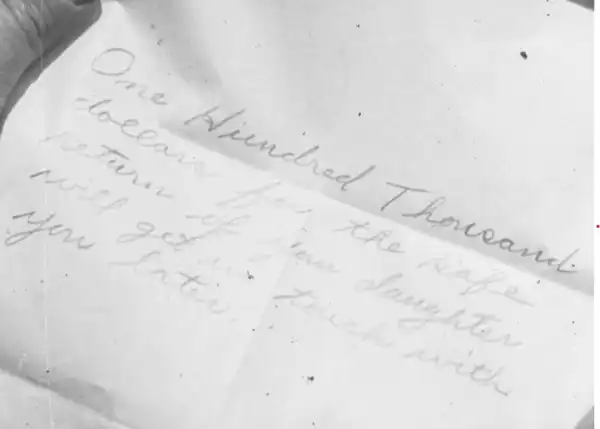 One Hundred Thousand
dollars for the safe
return of your daughter
will get in touch with
you later.